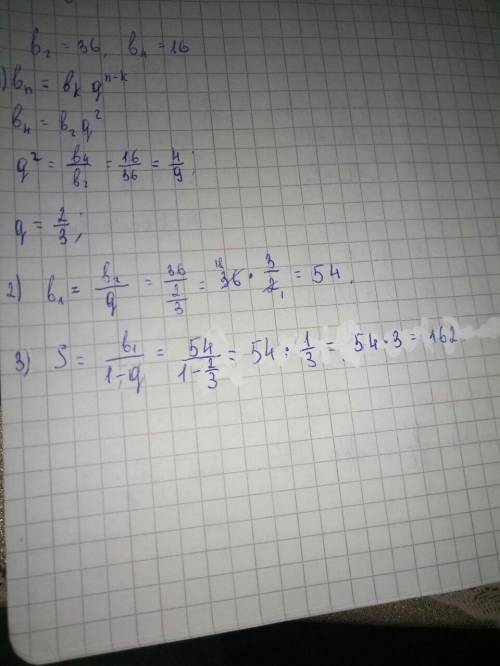 b₂ = 36, b₄ = 16
1) bₙ = bₖ qⁿ⁻ᵏ
b₄ = b₂ q²
q² = b₄/b₂ = 16/36 = 4/9;
q = 2/3;
2) b₁ = b₂/q = 36/(2/3) = 36 · 3/2 = 54.
3) S = b₁/(1-q) = 54/(1-2/3) = 54 : 1/3 = 54 · 3 = 162